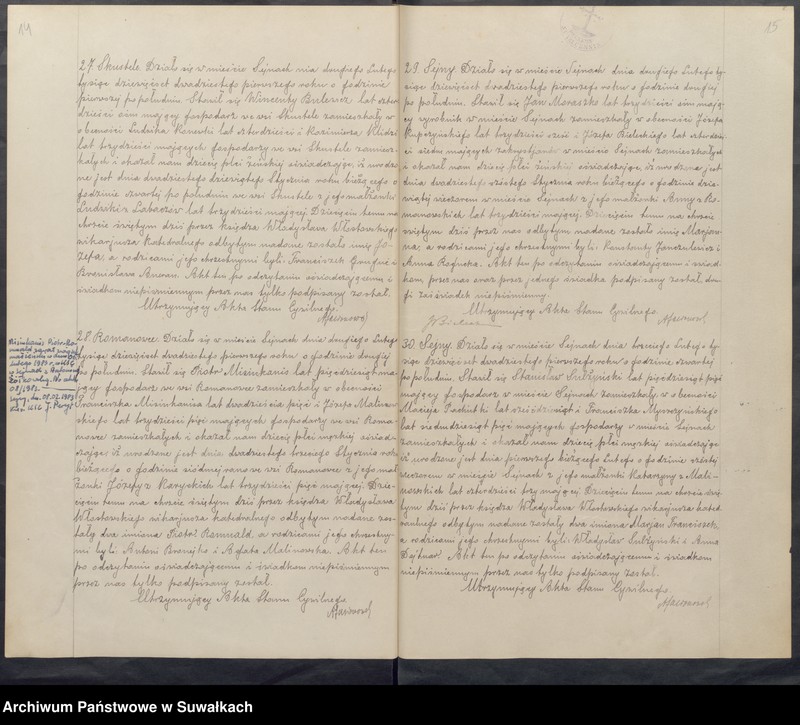 14
27. Skustele. Działo się w mieście Sejnach dnia drugiego Lutego
tysiąc dziewięćset dwudziestego pierwszego roku o godzinie
pierwszej po południu. Stawił się Wincenty Bulewicz lat czter-
dzieści ośm mający gospodarz we wsi Skustele zamieszkały w
obecności Ludwika lat czterdzieści i Kazimierza
lat trzydzieści mających gospodarzy we wsi Skustele zamiesz-
kałych i okazał nam dziecię płci żeńskiej oświadczając, iż urodzo-
ne jest dnia dwudziestego dziewiątego Stycznia roku bieżącego o
godzinie czwartej po południu we wsi Skustele z jego małżonki
Ludwiki z lat trzydzieści mającej. Dziecięciu temu na
chrzcie świętym dziś przez księdza Władysława Włostowskiego
wikarjusza katedralnego odbytym nadane zostało imię Jó-
zefa, a rodzicami jego chrzestnymi byli: Franciszek i
Bronisława. Akt ten po odczytaniu oświadczającemu i
świadkom niepiśmiennym przez nas tylko podpisany został.
Utrzymujący Akta Stanu Cywilnego
28. Romanowce. Działo się w mieście Sejnach dnia drugiego Lutego
tysiąc dziewięćset dwudziestego pierwszego roku o godzinie drugiej
po południu. Stawił się Piotr Misiukanis lat pięćdziesiąt ma-
jący gospodarz we wsi Romanowce zamieszkały w obecności
Franciszka Misiukanisa lat dwadzieścia pięć i Józefa Malinow-
skiego lat trzydzieści pięć mających gospodarzy we wsi Roma-
nowce zamieszkałych i okazał nam dziecię płci męskiej oświad-
czając, iż urodzone jest dnia dwudziestego trzeciego Stycznia roku
bieżącego o godzinie siódmej rano we wsi Romanowce z jego mał-
żonki Józefy z lat trzydzieści pięć mającej. Dzie-
cięciu temu na chrzcie świętym dziś przez księdza Władysława
Włostowskiego wikarjusza katedralnego odbytym nadane zos-
tały dwa imiona Piotr Romuald, a rodzicami jego chrzestny-
mi byli: Antoni i Agata Malinowska. Akt ten
po odczytaniu oświadczającemu i świadkom niepiśmiennym
przez nas tylko podpisany został.
Utrzymujący Akta Stanu Cywilnego
15
29. Sejny. Działo się w mieście Sejnach dnia drugiego Lutego ty-
siąc dziewięćset dwudziestego pierwszego roku o godzinie drugiej
po południu. Stawił się Jan Moraczko lat trzydzieści ośm mają-
cy wyrobnik w mieście Sejnach zamieszkały w obecności Józefa
lat trzydzieści sześć i Józefa Bieleckiego lat czterdzie-
ści siedm mających w mieście Sejnach zamieszkałych
i okazał nam dziecię płci żeńskiej oświadczając, iż urodzone jest
dnia dwudziestego szóstego Stycznia roku bieżącego o godzinie dzie-
wiątej wieczorem w mieście Sejnach z jego małżonki Anny z Ro-
manowskich lat trzydzieści mającej. Dziecięciu temu na chrzcie
świętym dziś przez nas odbytym nadane zostało imię Marjan-
na, a rodzicami jego chrzestnymi byli: Konstanty Janczulewicz i
Anna. Akt ten po odczytaniu oświadczającemu i świad-
kom, przez nas oraz przez jednego świadka podpisany został, dru-
gi zaś świadek niepiśmienny.
Utrzymujący Akta Stanu Cywilnego
30. Sejny. Działo się w mieście Sejnach dnia trzeciego Lutego ty-
siąc dziewięćset dwudziestego pierwszego roku o godzinie czwartej
po południu. Stawił się Stanisław Lutyński lat pięćdziesiąt pięć
mający gospodarz w mieście Sejnach zamieszkały w obecności
Macieja lat i Franciszka Myszczyńskiego
lat siedmdziesiąt pięć mających gospodarzy w mieście Sejnach
zamieszkałych i okazał nam dziecię płci męskiej oświadczając
iż urodzone jest dnia pierwszego bieżącego Lutego o godzinie szóstej
wieczorem w mieście Sejnach z jego małżonki Katarzyny z Mali-
nowskich lat czterdzieści trzy mającej. Dziecięciu temu na chrzcie świę-
tym dziś przez księdza Władysława Włostowskiego wikarjusza kated-
ralnego odbytym nadane zostały dwa imiona Marjan Franciszek,
a rodzicami jego chrzestnymi byli: Władysław Lutyński i Anna
Akt ten po odczytaniu oświadczającemu i świadkom
niepiśmiennym przez nas tylko podpisany został.
Utrzymujący Akta Stanu Cywilnego
Archiwum Państwowe w Suwałkach